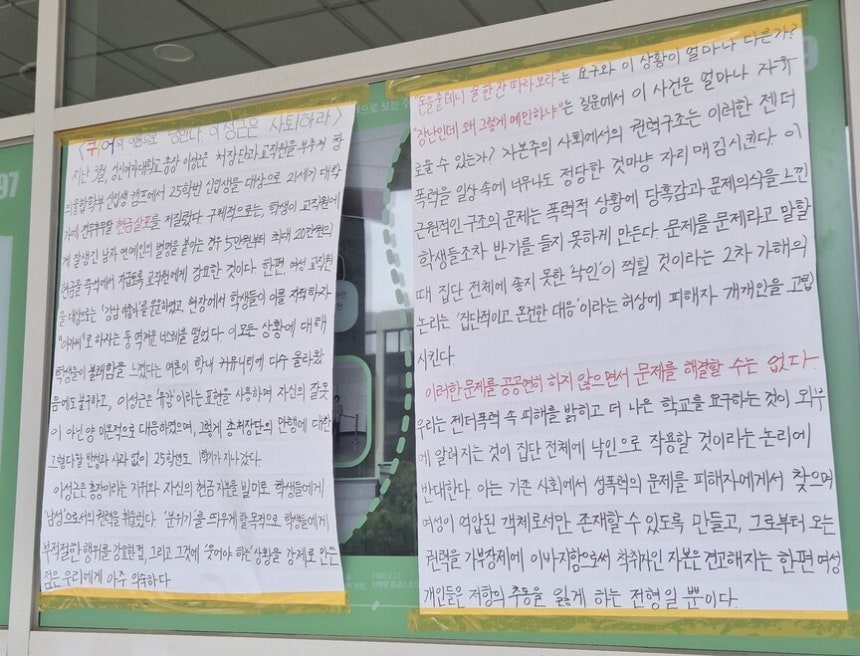 <귀여 당한다. 이성근은 사퇴하라>
지난 3월, 성신여자대학교 총장 이성근은 처장단과 교직원을 부추겨 창
의융합학부 신입생 캠프에서 25학번 신입생을 대상으로 21세기 대학
가에 전무후무할 현금살포를 저질렀다. 구체적으로는, 학생이 교직원에
게 잘생긴 남자 연예인의 별명을 붙이는 경우 5만원부터 최대 20만원의
현금을 즉석에서 지급토록 교직원에게 강요한 것이다. 한편, 여성 교직원
을 대상으로는 '강남 마담'를 운운하였고, 현장에서 학생들이 이를
"아가씨"로 하자는 등 역겨운 너스레를 떨었다. 이 모든 상황에 대해
학생들이 불쾌함을 느꼈다는 여론이 학내 커뮤니티에 다수 올라왔
음에도 불구하고, 이성근은 '유감'이라는 표현을 사용하며 자신의 잘못
이 아닌 양 미온적으로 대응하였으며, 그렇게 총처장단의 만행에 대한
그렇다할 반성과 사과 없이 25학번도 1학기가 지나갔다.
이성근은 총장이라는 지위와 자신의 현금자본을 빌미로 학생들에게
'남성'으로서의 권력을 휘둘렀다. '분위기'를 띄우게 할 목적으로, 학생들에게
부적절한 행위를 강요한 점, 그리고 그것에 '웃어야 하는' 상황을 강제로 만든
점은 우리에게 아주 익숙하다.
"돈을 줄테니 술 한 잔 따라 보라"는 요구와 이 상황이 얼마나 다른가?
"장난인데 왜 그렇게 예민하냐"는 질문에서 이 사건은 얼마나 자유
로울 수 있는가? 자본주의 사회에서의 권력구조는 이러한 젠더
폭력을 일상 속에 너무나도 정당한 것마냥 자리 매김시킨다. 이
근원적인 구조의 문제는 폭력적 상황에 당혹감과 문제의식을 느낀
학생들조차 반기를 들지 못하게 만든다. 문제를 문제라고 말할
때 집단 전체에 좋지 못한 '낙인'이 찍힐 것이라는 2차 가해의
논리는 '집단적이고 온건한 대응'이라는 허상에 피해자 개개인을 고립
시킨다
이러한 문제를 공공연히 하지 않으면서 문제를 해결할 수는 없다.
우리는 젠더폭력 속 피해를 밝히고 더 나은 학교를 요구하는 것이 외부
에 알려지는 것이 집단 전체에 낙인으로 작용할 것이라는 논리에
반대한다. 이는 기존 사회에서 성폭력의 문제를 피해자에게서 찾으며
여성이 억압된 객체로서만 존재할 수 있도록 만들고, 그로부터 오는
권력을 가부장제에 이바지함으로써 착취자인 자본은 견고해지는 한편 여성
개인들은 저항의 추동을 잃게 하는 전형일 뿐이다.
97